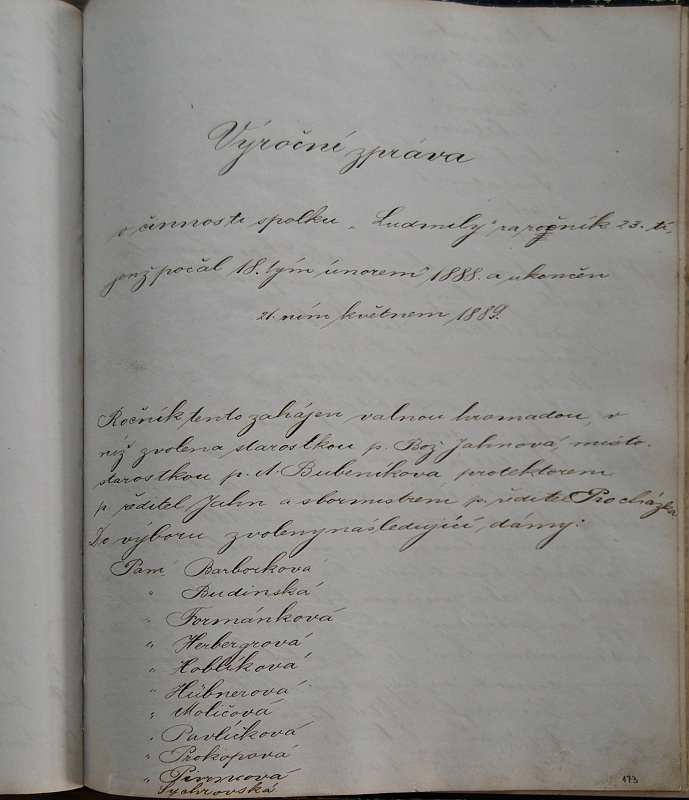 Výroční zpráva
o činnosti spolku „Ludmily" za ročník 23. tí,
jenž počal 18. tým únorem 1888. a ukončen
21. ním květnem 1889.
Ročník tento zahájen valnou hromadou, v
níž zvolena starostkou p. Bož. Jahnová, místo-
starostkou p. A. Bubeníková, protektorem
p. ředitel Jahn a sbormistrem p. ředitel Procházka
Do výboru zvoleny následující dámy:
Paní Barborková
" Budinská
" Formánková
" Herbergrová
" Hoblíková
" Hübnerová
" Moličová
" Pavlíčková
" Prokopová
"
Sychrovská
173